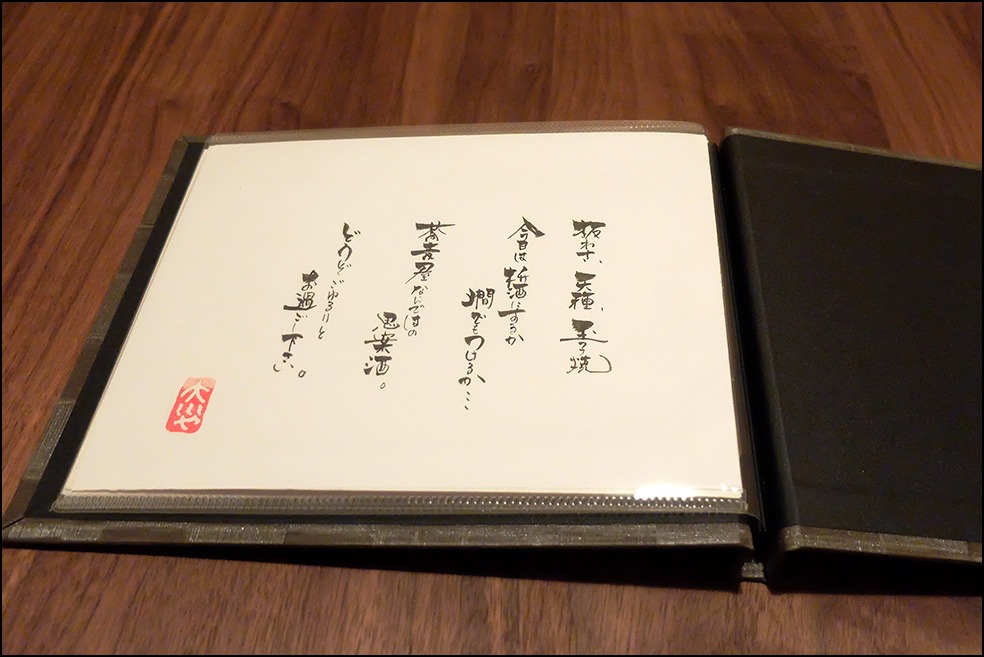 板わさ、天種、玉子焼
今日は枡酒にするか
燗でもつけるか…
蕎麦屋ならではの
思案酒。
どうぞごゆるりと
お過ごし下さい。
大川や